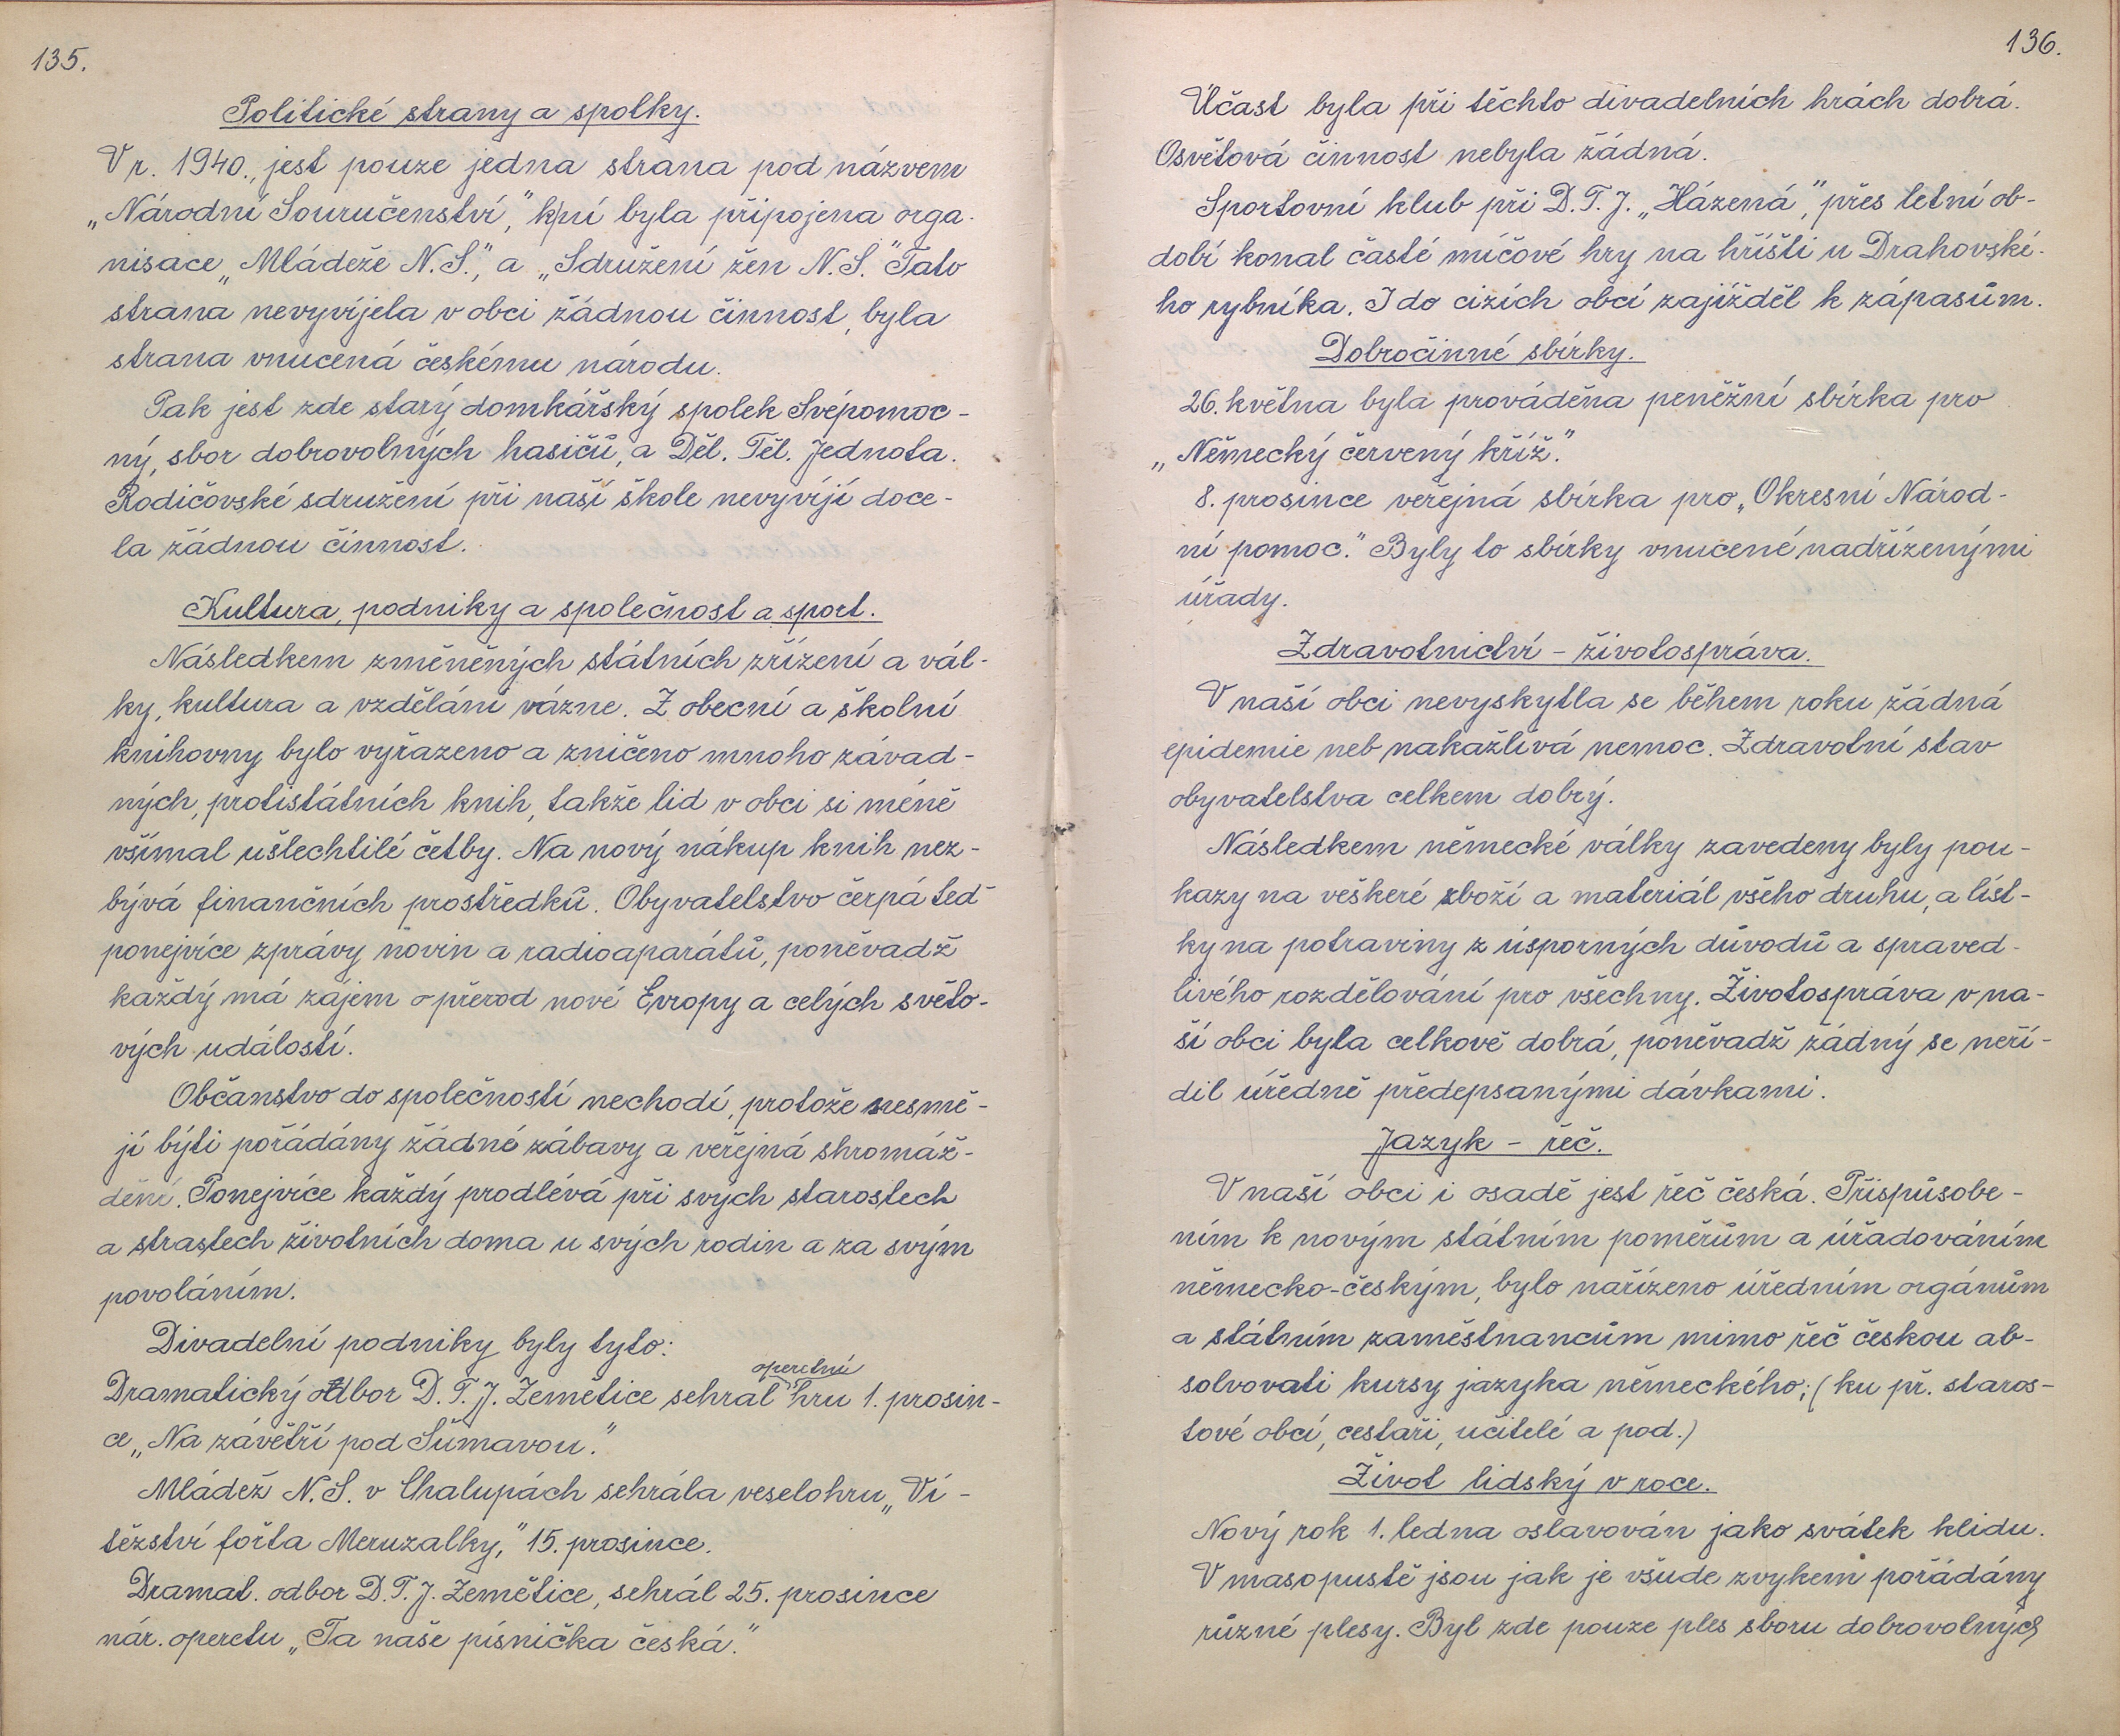 135.
Politické strany a spolky.
V r. 1940., jest pouze jedna strana pod názvem
„Národní Souručenství," k ní byla připojena orga-
nisace „Mládeže N.S.", a „Sdružení žen N.S." Tato
strana nevyvíjela v obci žádnou činnost, byla
strana vnucená českému národu.
Pak jest zde starý domkářský spolek Svépomoc-
ný, sbor dobrovolných hasičů, a Děl. Těl. Jednota.
Rodičovské sdružení při naší škole nevyvíjí doce-
la žádnou činnost.
Kultura, podniky a společnost a sport.
Následkem změněných státních zřízení a vál-
ky, kultura a vzdělání vázne. Z obecní a školní
knihovny bylo vyřazeno a zničeno mnoho závad-
ných, protistátních knih, takže lid v obci si méně
všímal ušlechtilé četby. Na nový nákup knih nez-
bývá finančních prostředků. Obyvatelstvo čerpá teď
ponejvíce zprávy novin a radioaparátů, poněvadž
každý má zájem o přerod nové Evropy a celých světo-
vých událostí.
Občanstvo do společností nechodí, protože nesmě-
jí býti pořádány žádné zábavy a veřejná shromáž-
dění. Ponejvíce každý prodlévá při svých starostech
a strastech životních doma u svých rodin a za svým
povoláním.
Divadelní podniky byly tyto:
operetní
Dramatický odbor D.T.J. Zemětice sehrál hru 1. prosin-
ce „Na závětří pod Šumavou."
Mládež N.S. v Chalupách sehrála veselohru „Ví-
tězství fořta Meruzalky," 15. prosince.
Dramat. odbor D.T.J. Zemětice, sehrál 25. prosince
nár. operetu „Ta naše písnička česká."
136.
Účast byla při těchto divadelních hrách dobrá.
Osvětová činnost nebyla žádná.
Sportovní klub při D.T.J. „Házená", přes letní ob-
dobí konal časté míčové hry na hřišti u Drahovské-
ho rybníka. I do cizích obcí zajížděl k zápasům.
Dobročinné sbírky.
26. května byla prováděna peněžní sbírka pro
„Německý červený kříž."
8. prosince veřejná sbírka pro „Okresní Národ-
ní pomoc." Byly to sbírky vnucené nadřízenými
úřady.
Zdravotnictví - životospráva.
V naší obci nevyskytla se během roku žádná
epidemie neb nakažlivá nemoc. Zdravotní stav
obyvatelstva celkem dobrý.
Následkem německé války zavedeny byly pou-
kazy na veškeré zboží a materiál všeho druhu, a líst-
ky na potraviny z úsporných důvodů a spraved-
livého rozdělování pro všechny. Životospráva v na-
ší obci byla celkově dobrá, poněvadž žádný se neří-
dil úředně předepsanými dávkami.
Jazyk - řeč.
V naší obci i osadě jest řeč česká. Přispůsobe-
ním k novým státním poměrům a úřadováním
německo-českým, bylo nařízeno úředním orgánům
a státním zaměstnancům mimo řeč českou ab-
solvovati kursy jazyka německého; (ku př. staros-
tové obcí, cestaři, učitelé a pod.)
Život lidský v roce.
Nový rok 1. ledna oslavován jako svátek klidu.
V masopustě jsou jak je všude zvykem pořádány
různé plesy. Byl zde pouze ples sboru dobrovolných